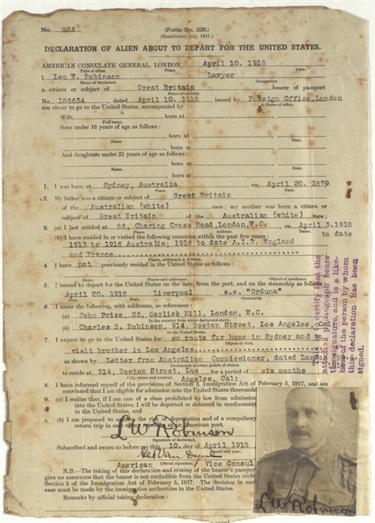 No. 386 (Form No. 228.)
(Established July, 1917.)
DECLARATION OF ALIEN ABOUT TO DEPART FOR THE UNITED STATES.
AMERICAN CONSULATE GENERAL LONDON April 10. 1918
I, Leo W. Robinson Lawyer
a citizen or subject of Great Britain bearer of passport
No. 186634 dated April 10. 1918 issued by Foreign Office, London
am about to go to the United States, accompanied by
Wife, born at
Full name.
Sons under 16 years of age as follows:
born at
born at
And daughters under 21 years of age as follows:
born at
born at
1. I was born at Sydney, Australia on April 20. 1879
2. My father was a citizen or subject of Great Britain
of the Australian (white) race; my mother was born a citizen or
subject of Great Britain of the Australian (white) race;
3. (a) I last resided at 56, Charing Cross Road, London, W.C. on April 3. 1918
(b) I have resided in or visited the following countries within the past five years to date
1913 to 1916 Australia; 1916 to date A.I.F. England
and France
4. I have not previously resided in the United States as follows:
5. I intend to depart for the United States on the date, from the port, and on the steamship as follows:
April 20. 1918 Liverpool s.s. "Orduna"
6. I name the following, with addresses, as reference:
(a) John Price, 25, Garlick Hill, London, E.C.
In the country from where declarant starts.
(b) Charles B. Robinson, 914, Boston Street, Los Angeles,
In the United States.
7. I expect to go to the United States for en route for home in Sydney and to
visit brother in Los Angeles
as shown by Letter from Australian Commissioner, dated London
to reside at 914, Boston Street, Los for a period of six months
Angeles, Cal:
8. I have informed myself of the provisions of Section 3, Immigration Act of February 5, 1917, and am
convinced that I am eligible for admission into the United States thereunder.
9. (a) I realize that, if I am one of a class prohibited by law from admission
into the United States, I will be deported or detained in confinement
in the United States, and
(b) I am prepared to assume the risk of deportation and of a compulsory
return trip in case of my rejection at an American port.
L W Robinson
Signature of Declarant.
Subscribed and sworn to before me this 10. day of April 1918
American Vice Consul
Official signature.
N.B.—The taking of this declaration and viséing of the bearer's passport
give no assurance that the bearer is not excludible from the United States under
Section 3 of the Immigration Act of February 5, 1917. The decision in each
case must be made by the immigration authorities in the United States.
Remarks by official taking declaration:
This is to certify that the
photograph
signature, and is a like-
ness of the person by whom
the declaration has been
signed.
L W Robinson